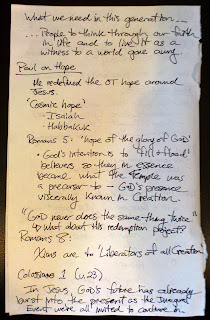 What we need in this generation...
... People to think through our faith
in life and to live it as a
witness to a world gone awry.
Paul on Hope
He redefined the OT hope around
Jesus.
'Cosmic hope'
• Isaiah
• Habbakuk
Romans 5: 'hope of the glory of God'
• God's intention is to fill & flood
believers so then in essence
became what the temple was
a precursor to - God's presence
viscerally known in Creation.
"God never does the same thing twice"
↳ what about this redemption project?
Romans 8:
Xians are to 'Liberators of all Creation'
Colossians 1 (v.23)
In Jesus, God's future has already
burst into the present as the Inaugural
Event we're all invited to continue in